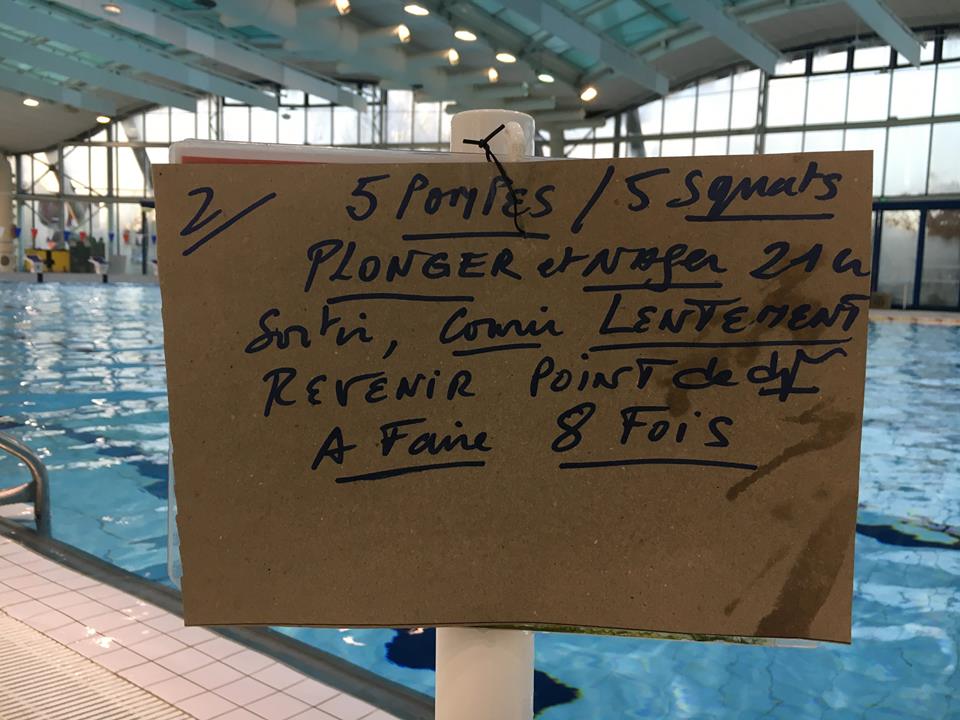 2/ 5 POMPES / 5 Squats
PLONGER et NAger 21 m
Sortir, Courir LENTEMENT
REVENIR POINT de
A Faire 8 Fois